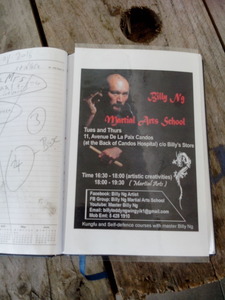 Billy Ng
Martial Arts School
Tues and Thurs
11, Avenue De La Paix Candos
(at the Back of Candos Hospital) c/o Billy's Store
Time 16:30 - 18:00 (artistic creativities)
18:00 - 19:30 (Martial Arts)
Facebook: Billy Ng Artist
FB Group: Billy Ng Martial Arts School
Youtube: Master Billy Ng
Kungfu and Self-defence courses with master Ng.